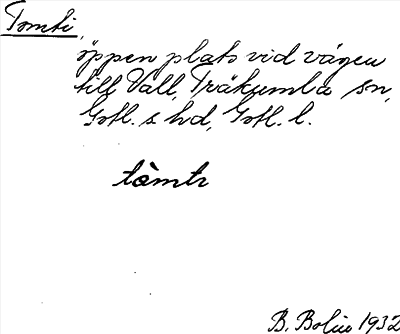 Tomti,
öppen plats vid vägen
till Vall, Träkumla sn,
Gotl. s hd, Gotl. l.
tòmtı
B. Bolin 1932